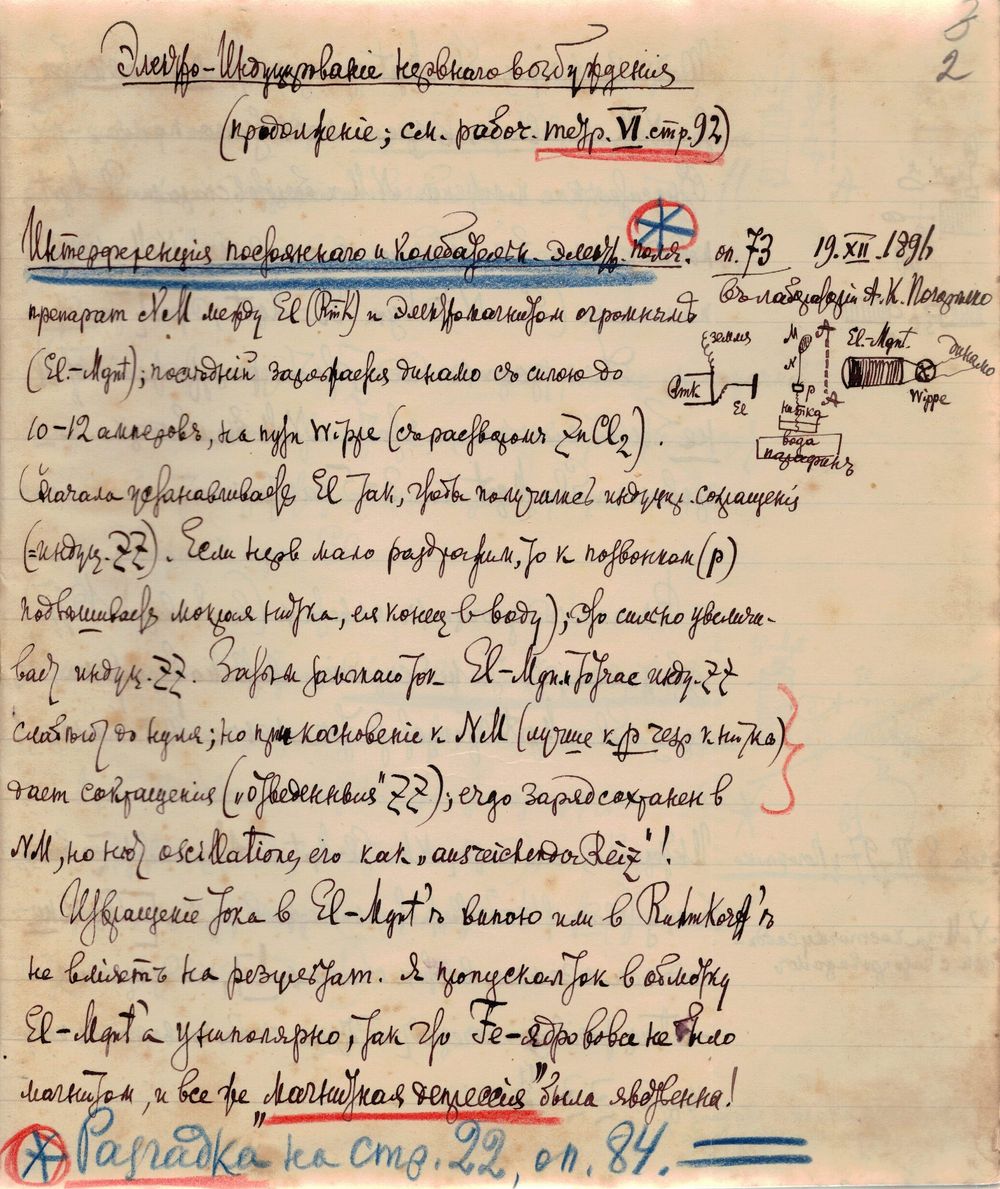 3
2
Электро-Индуцированіе нервнаго возбужденія
(продолженіе; см. рабоч. тетр. VI. стр. 92)
Интерференція постояннаго и колебательн. электр. поля. оп. 73 19.XII.1896
въ лабораторіи А. К. Погорелко
препарат NM между El (Rmk) и электромагнитом огромнымъ
(El.-Mgnt); последній заряжается динамо съ силою до
10-12 амперовъ, на пути Wippe (съ растворомъ ZnCl2).
земля
Rmk
El
M
N
p
A
A
нитка
вода
парафинъ
El.-Mgnt.
Wippe
динамо
Сначала устанавливаетъ El так, чтобы получились индукц. сокращенія
(=индукц. ZZ). Если нерв мало раздражим, то к позвонкам (p)
подвѣшивается мокрая нитка, ея конец в воду); это сильно увеличи-
вает индук. ZZ. Затѣм замыкаю ток El-Mgnt и тотчас инду. ZZ
слабѣют до нуля; но прикосновеніе к NM (лучше к p чер к нитка)
дает сокращенія („отведенныя" ZZ); заряд сохранен в
NM, но нѣт oscillationes его как „ausreichender Reiz"!
Извращеніе тока в El-Mgnt'ѣ виппою или в Ruhmkorff'ѣ
не вліяетъ на результат. Я пропускал ток в обмотку
El-Mgnt'а униполярно, так что Fe-ядро вовсе не было
магнитом, и все же „магнитная депрессія" была явственна!
Разгадка на стр. 22, оп. 84.